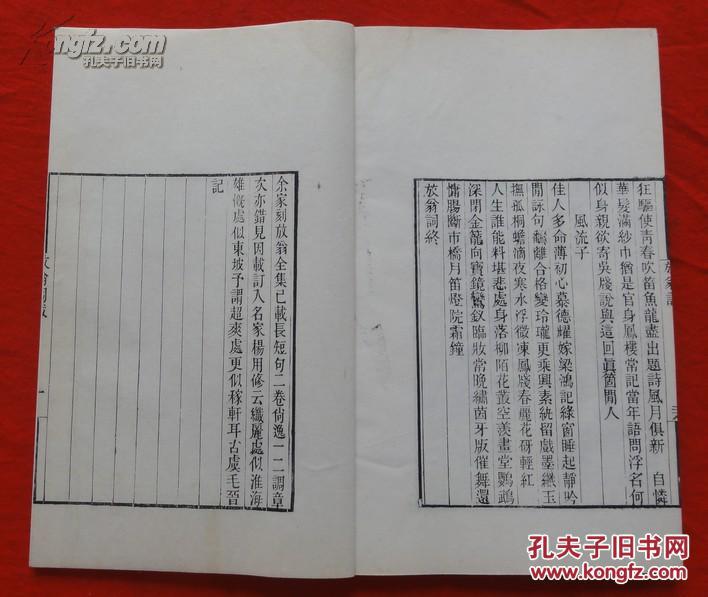 狂驅使青春吹笛魚龍盡出題詩風月俱新 自憐
華髮滿紗巾猶是官身鳳樓常記當年語問浮名何
似身親欲寄吳牋說與這回真箇閒人
風流子
佳人多命薄初心慕德耀嫁梁鴻記綠窗睡起靜吟
閒詠句飜離合格變玲瓏更乘興素紈留戲墨纖玉
撫孤桐蟾滴夜寒水浮微凍鳳牋春麗花砑輕紅
人生誰能料堪悲處身落柳陌花叢空羨畫堂鸚鵡
深閉金籠向寶鏡鸞釵臨妝常晚繡茵牙版催舞還
慵腸斷市橋月笛燈院霜鐘
放翁詞終
余家刻放翁全集已載長短句二卷尚逸一二調章
次亦錯見因載訂入名家楊用修云纖麗處似淮海
雄慨處似東坡予謂超爽處更似稼軒耳古虞毛晉
記
放翁詞跋
一
kongfz.com
孔夫子旧书网
孔夫子旧书网
www.kongfz.com